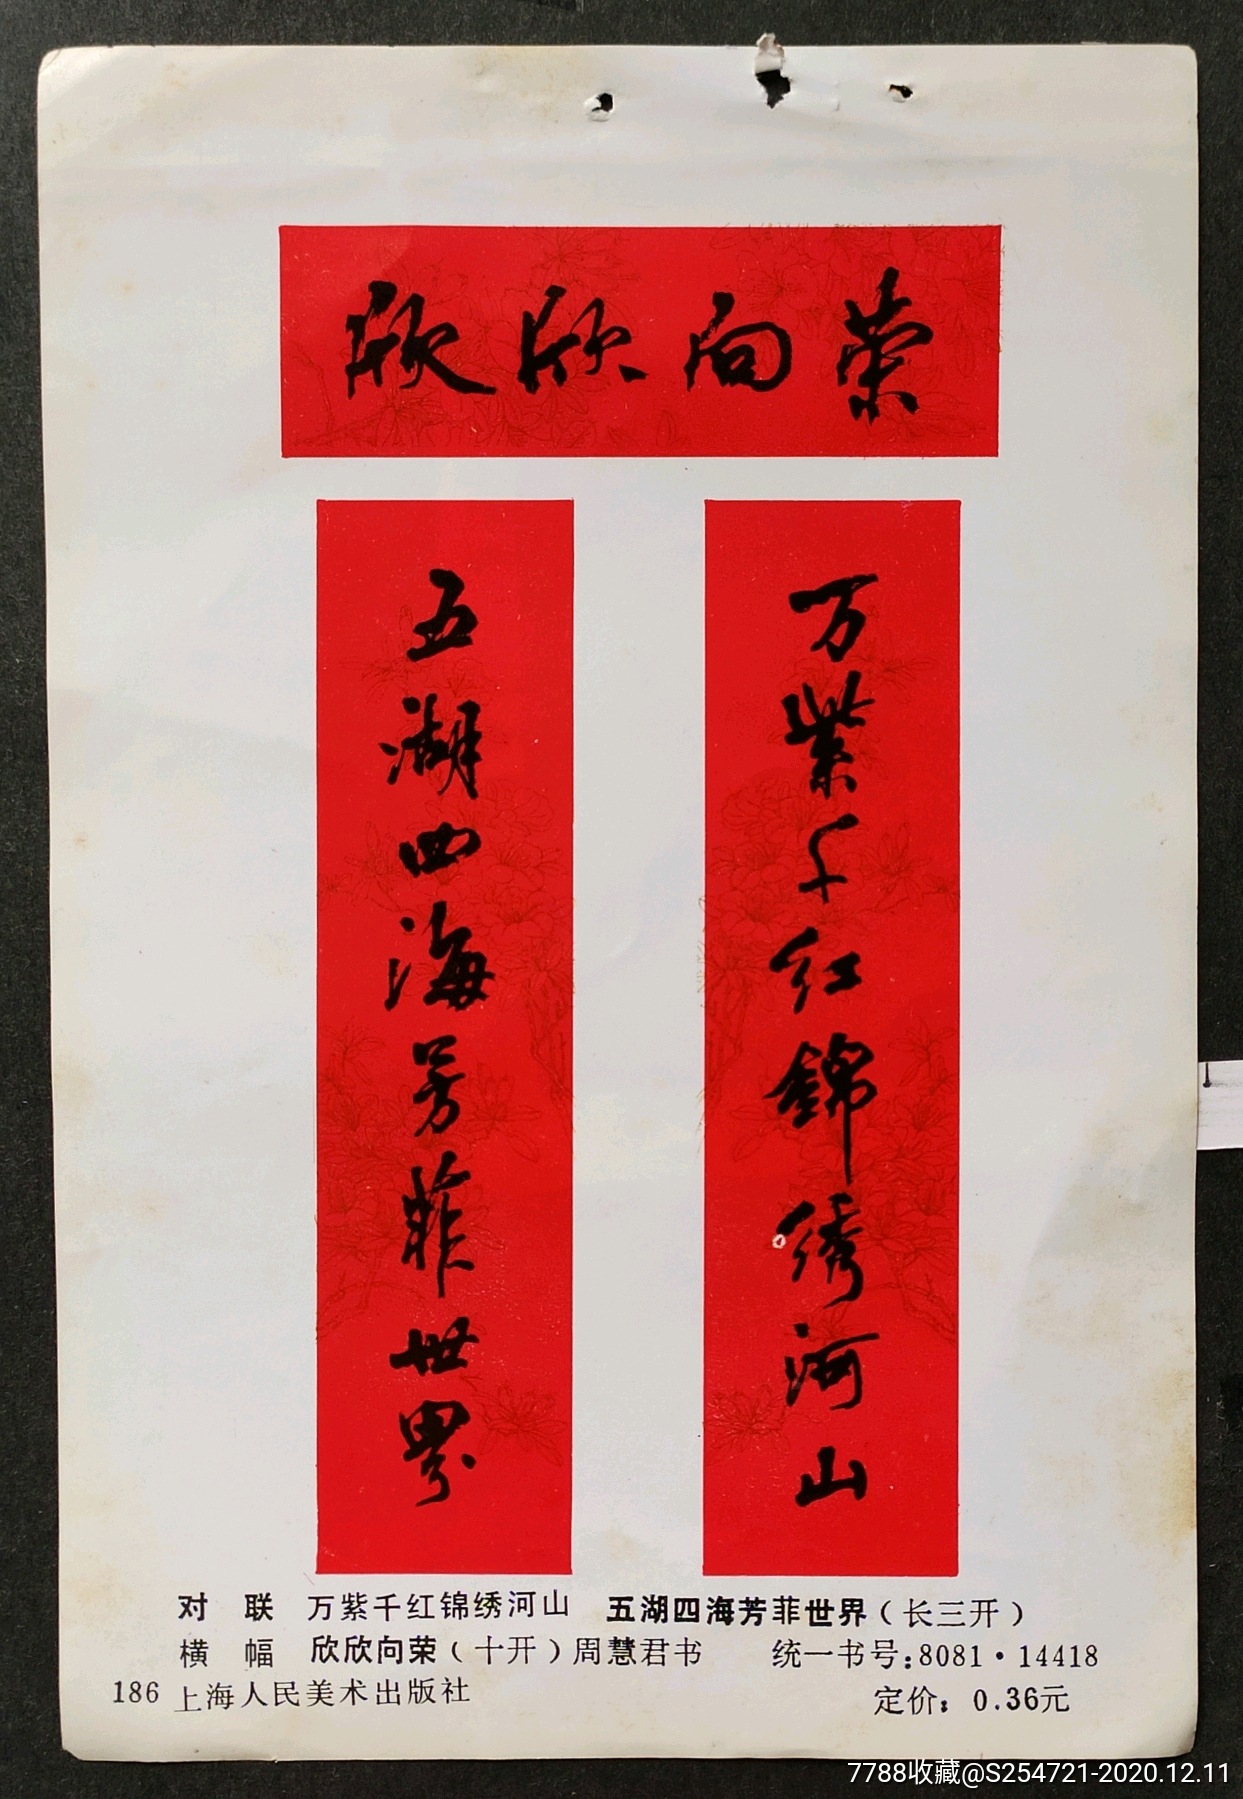 欣欣向荣
万紫千红锦绣河山
五湖四海芳菲世界
对 联 万紫千红锦绣河山 五湖四海芳菲世界(长三开)
横 幅 欣欣向荣(十开)周慧君书 统一书号:8081·14418
186 上海人民美术出版社 定价:0.36元
7788收藏@S254721-2020.12.11